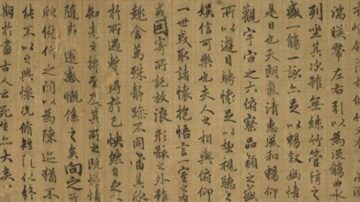 湍暎帶左右引以為流觴曲水
列坐其次雖無絲竹管絃之
盛一觴一詠亦足以暢敘幽情
是日也天朗氣清惠風和暢仰
觀宇宙之大俯察品類之盛
所以遊目騁懷足以極視聽之
娛信可樂也夫人之相與俯仰
一世或取諸懷抱悟言一室之內
或因寄所託放浪形骸之外雖
趣舍萬殊靜躁不同當其欣
於所遇暫得於己怏然自足不
知老之將至及其所之既惓情
隨事遷感慨係之矣向之所
欣俛仰之閒以為陳迹猶不
能不以之興懷況脩短隨化終
期於盡古人云死生亦大矣